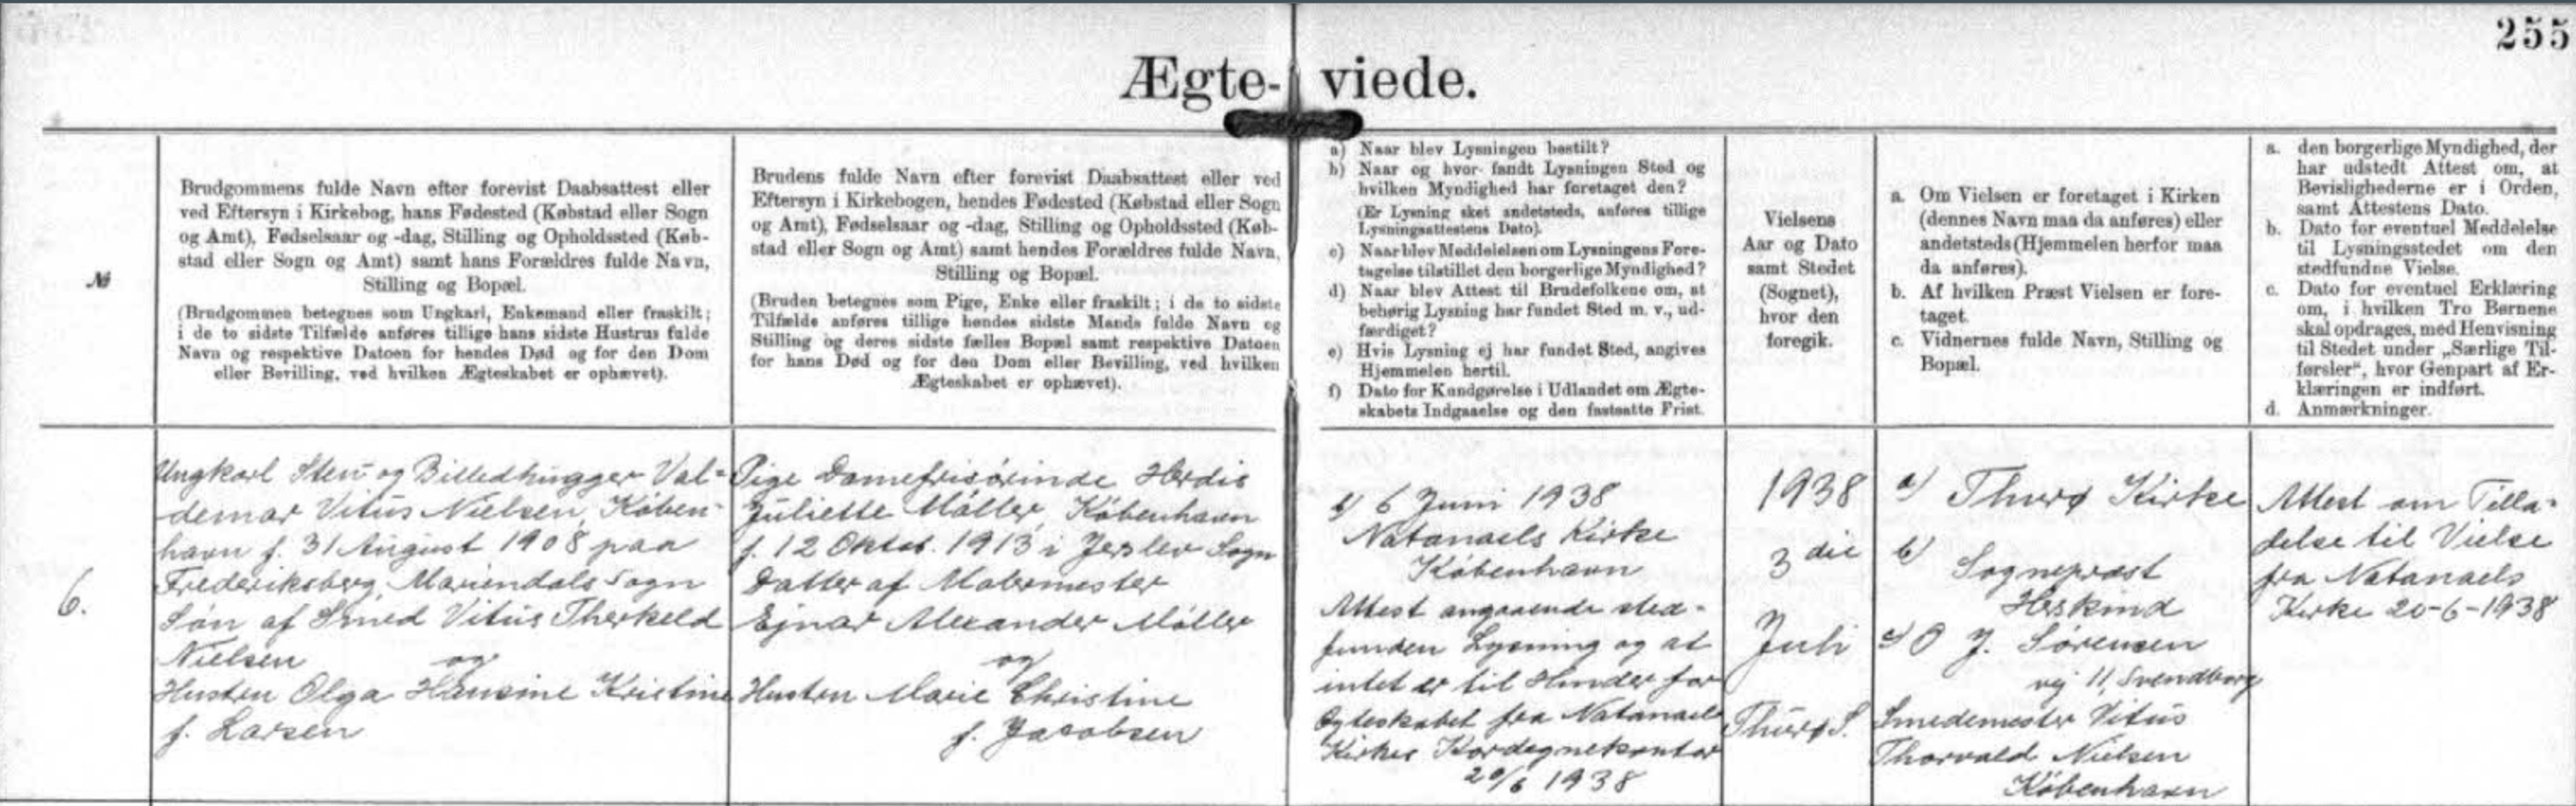 255
Ægte- viede.
№
Brudgommens fulde Navn efter forevist Daabsattest eller
ved Eftersyn i Kirkebog, hans Fødested (Købstad eller Sogn
og Amt), Fødselsaar og -dag, Stilling og Opholdssted (Køb-
stad eller Sogn og Amt) samt hans Forældres fulde Navn,
Stilling og Bopæl.
(Brudgommen betegnes som Ungkarl, Enkemand eller fraskilt;
i de to sidste Tilfælde anføres tillige hans sidste Hustrus fulde
Navn og respektive Datoen for hendes Død og for den Dom
eller Bevilling, ved hvilken Ægteskabet er ophævet).
Brudens fulde Navn efter forevist Daabsattest eller ved
Eftersyn i Kirkebogen, hendes Fødested (Købstad eller Sogn
og Amt), Fødselsaar og -dag, Stilling og Opholdssted (Køb-
stad eller Sogn og Amt) samt hendes Forældres fulde Navn,
Stilling og Bopæl.
(Bruden betegnes som Pige, Enke eller fraskilt; i de to sidste
Tilfælde anføres tillige hendes sidste Mands fulde Navn og
Stilling og deres sidste fælles Bopæl samt respektive Datoen
for hans Død og for den Dom eller Bevilling, ved hvilken
Ægteskabet er ophævet).
a) Naar blev Lysningen bestilt?
b) Naar og hvor fandt Lysningen Sted og
hvilken Myndighed har foretaget den?
(Er Lysning sket andetsteds, anføres tillige
Lysningsattestens Dato).
c) Naar blev Meddelelsen om Lysningens Fore-
tagelse tilstillet den borgerlige Myndighed?
d) Naar blev Attest til Brudefolkene om, at
behørig Lysning har fundet Sted m. v., ud-
færdiget?
e) Hvis Lysning ej har fundet Sted, angives
Hjemmelen hertil.
f) Dato for Kundgørelse i Udlandet om Ægte-
skabets Indgaaelse og den fastsatte Frist.
Vielsens
Aar og Dato
samt Stedet
(Sognet),
hvor den
foregik.
a. Om Vielsen er foretaget i Kirken
(dennes Navn maa da anføres) eller
andetsteds (Hjemmelen herfor maa
da anføres).
b. Af hvilken Præst Vielsen er fore-
taget.
c. Vidnernes fulde Navn, Stilling og
Bopæl.
a. den borgerlige Myndighed, der
har udstedt Attest om, at
Bevislighederne er i Orden,
samt Attestens Dato.
b. Dato for eventuel Meddelelse
til Lysningsstedet om den
stedfundne Vielse.
c. Dato for eventuel Erklæring
om, i hvilken Tro Børnene
skal opdrages, med Henvisning
til Stedet under „Særlige Til-
førsler“, hvor Genpart af Er-
klæringen er indført.
d. Anmærkninger.
6.
Ungkarl Sten- og Billedhugger Val-
demar Vitus Nielsen, Køben-
havn f. 31 August 1908 paa
Frederiksberg, Mariendals Sogn
Søn af Smed Vitus Therkeld
Nielsen og
Hustru Olga Hansine Kristine
f. Larsen
Pige Damefrisørinde Herdis
Juliette Møller, København
f. 12 Oktob. 1913 i Jerslev Sogn
Datter af Malermester
Ejnar Alexander Møller
og
Hustru Marie Christine
f. Jacobsen
b) 6 Juni 1938
Natanaels Kirke
København
Attest angaaende sted-
funden Lysning og at
intet er til Hinder for
Ægteskabet fra Natanaels
Kirkes Kordegnekontor
20/6 1938
1938
3 die
Juli
Thurø S.
a) Thurø Kirke
b)
Sognepræst
Heskind
c) O J. Sørensen
vej 11, Svendborg
Smedemester Vitus
Thorvald Nielsen
København
Attest om Tilla-
delse til Vielse
fra Natanaels
Kirke 20-6-1938